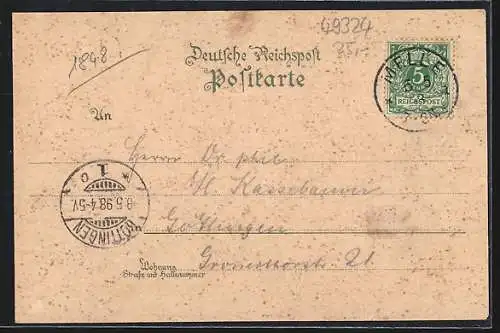 49324
35,-
1898.
Deutsche Reichspost
Postkarte
MELLE
5
REICHSPOST
An
Herrn Dr. phil.
H. Kassebaum
Göttingen
21
GÖTTINGEN
1
8.5.98.4-5V.
Wohnung
Straße und Hausnummer